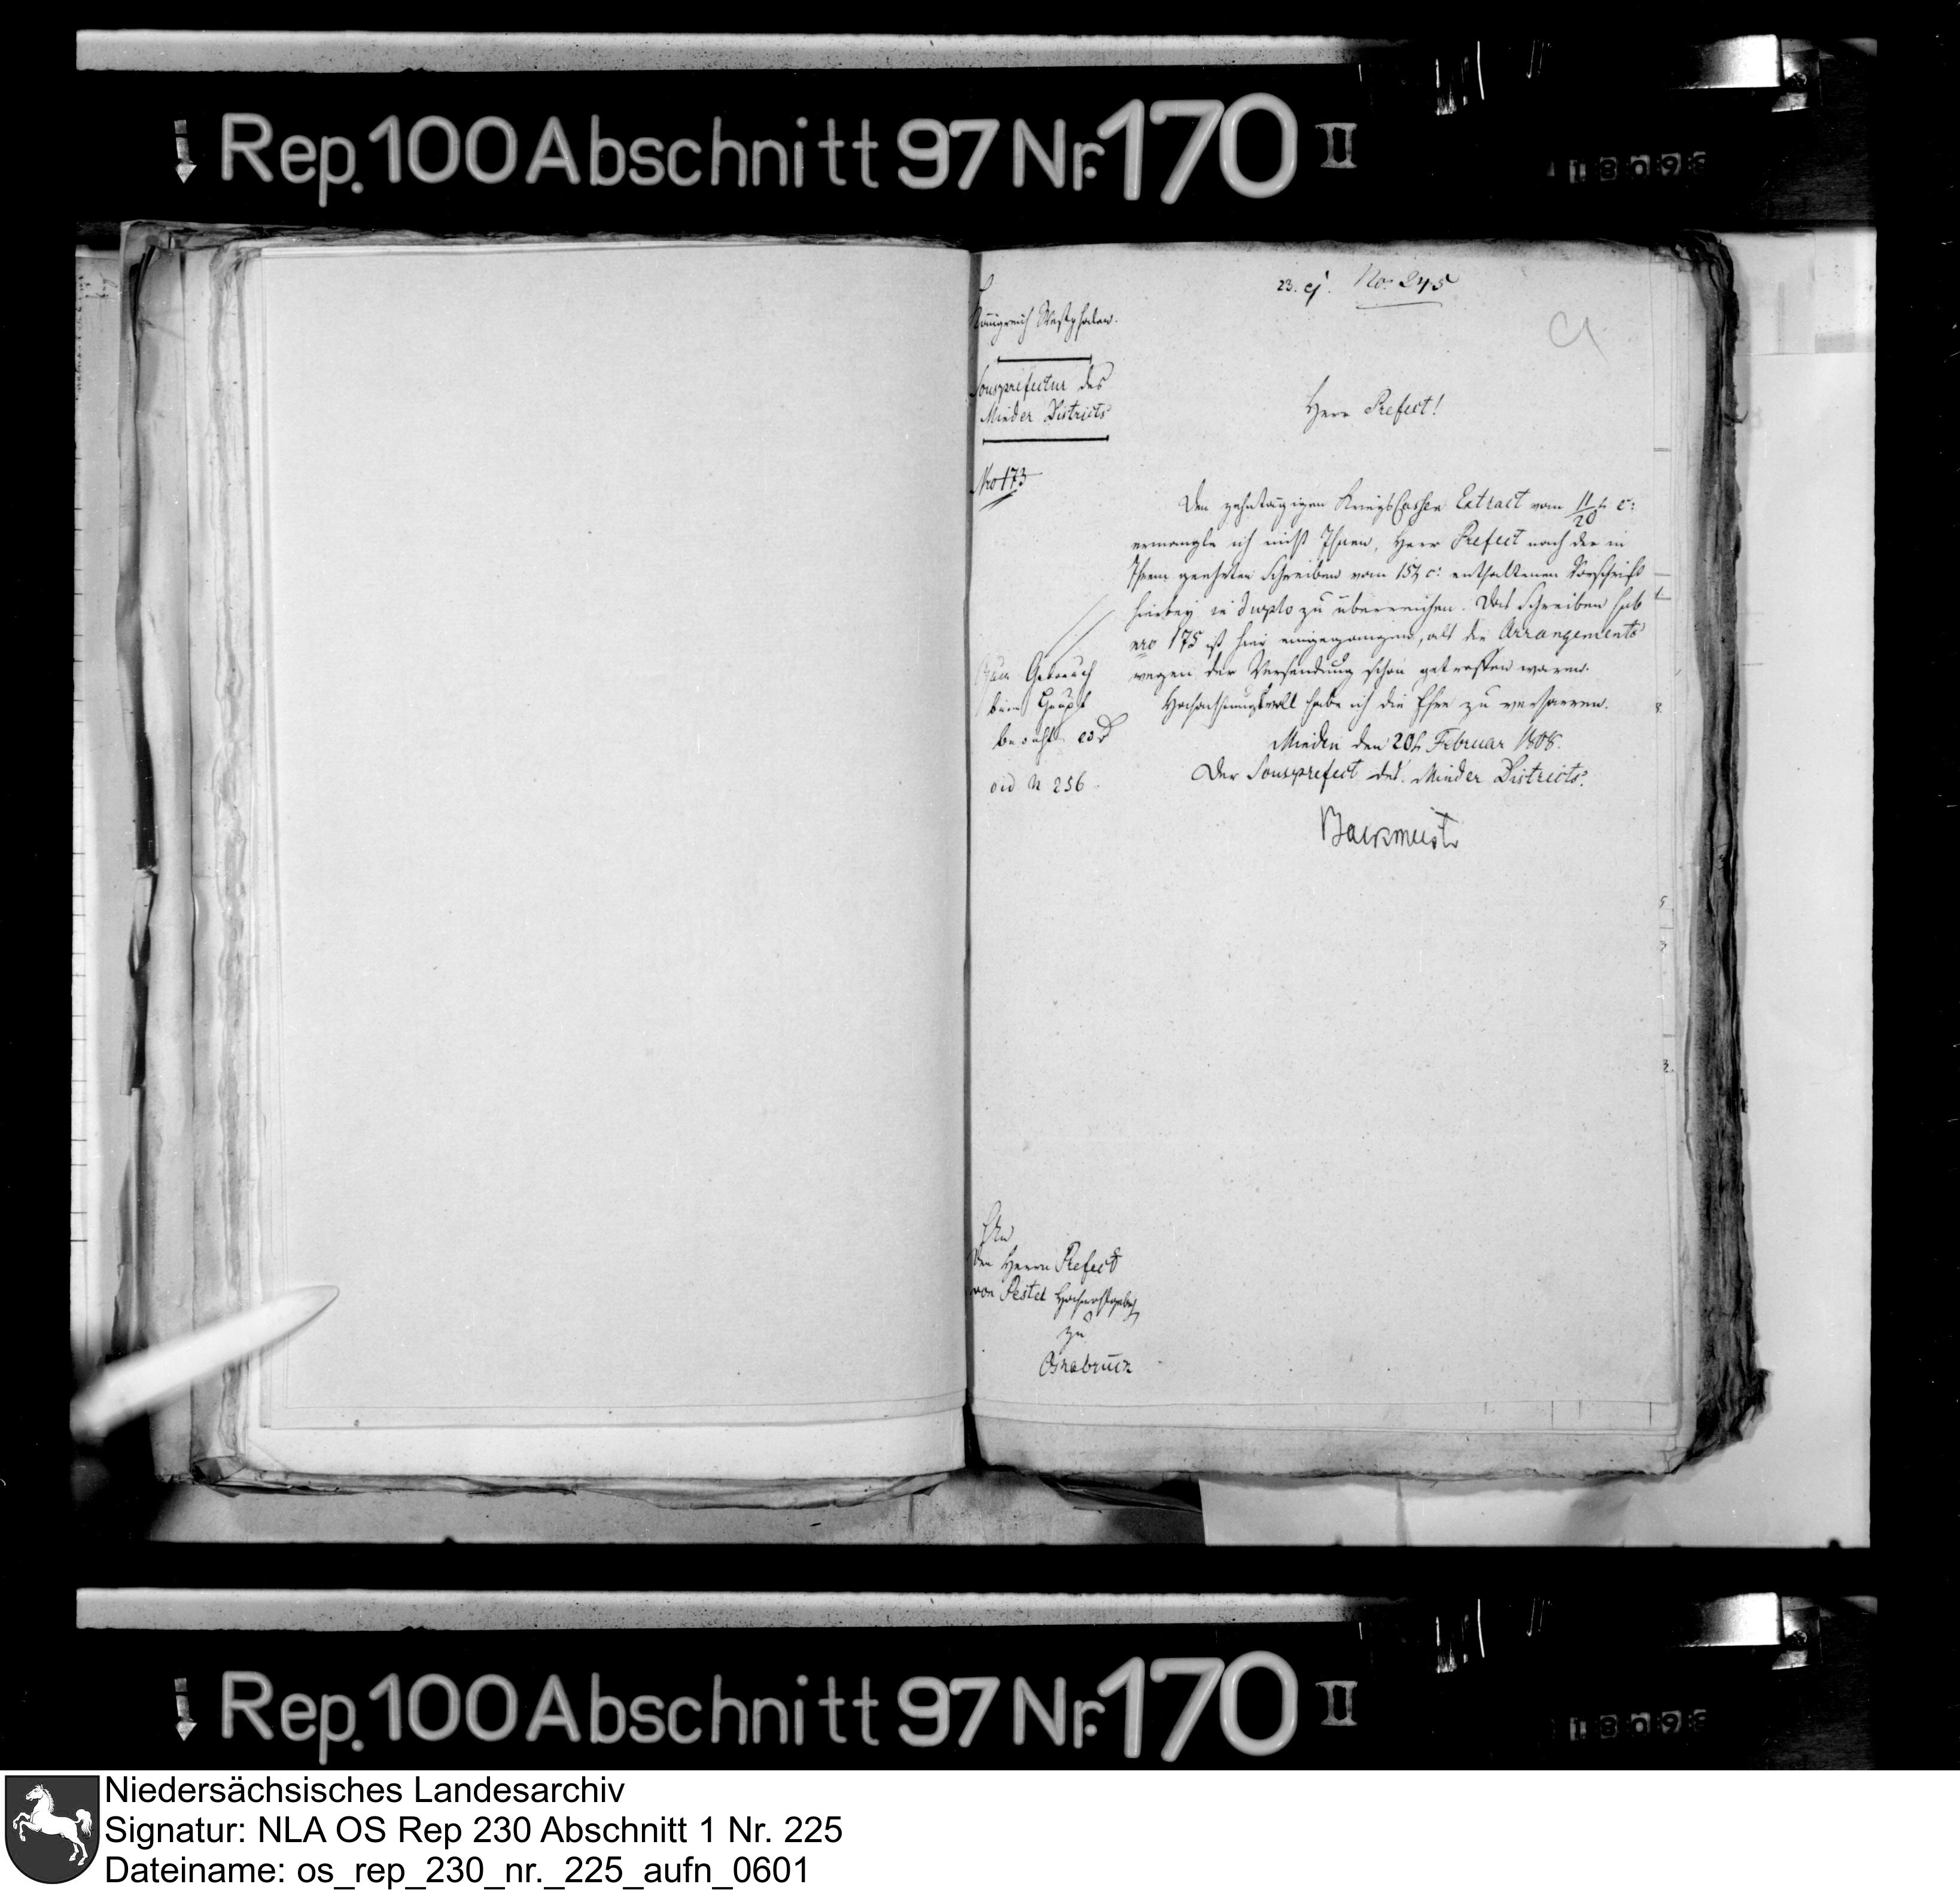 Rep. 100 Abschnitt 97 Nr. 170 II
1809
23. ej. No. 245
Königreich Westphalen.
Sousprefectur des
Minder Districts
Nro 173
Herr Prefect!
Den zehntägigen KriegsCassen Extract vom 11/20 h. c:
ermangle ich nicht Ihnen, Herr Prefect nach der in
Ihrem geehrten Schreiben vom 15 h. c: enthaltenen Vorschrift
hierbey in duplo zu überreichen. Das Schreiben sub
nro 175 ist hier eingegangen, als die Arrangements
wegen der Versendung schon getroffen waren.
Hochachtungsvoll habe ich die Ehre zu verharren.
Minden den 20 h. Februar 1808.
Der Sousprefect des Minder Districts.
Backmeister
Zum Gebrauch
beim Haupt
bericht
N 256
An
den Herrn Prefect
von Pestel Hochwohlgeb.
zu
Osnabrück
Rep. 100 Abschnitt 97 Nr. 170 II
1809
Niedersächsisches Landesarchiv
Signatur: NLA OS Rep 230 Abschnitt 1 Nr. 225
Dateiname: os_rep_230_nr._225_aufn_0601